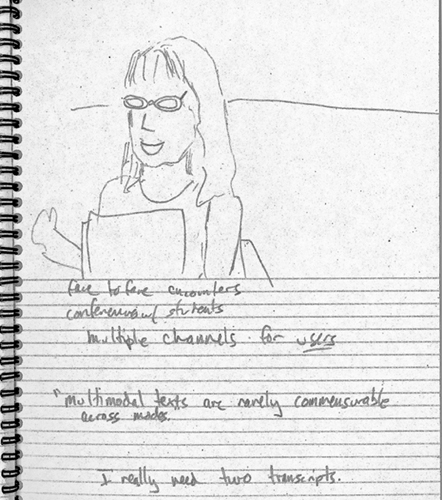 face to face encounters
conferences w/ students
multiple channels for users
"multimodal texts are rarely commensurable
across modes.
I really need two transcripts.